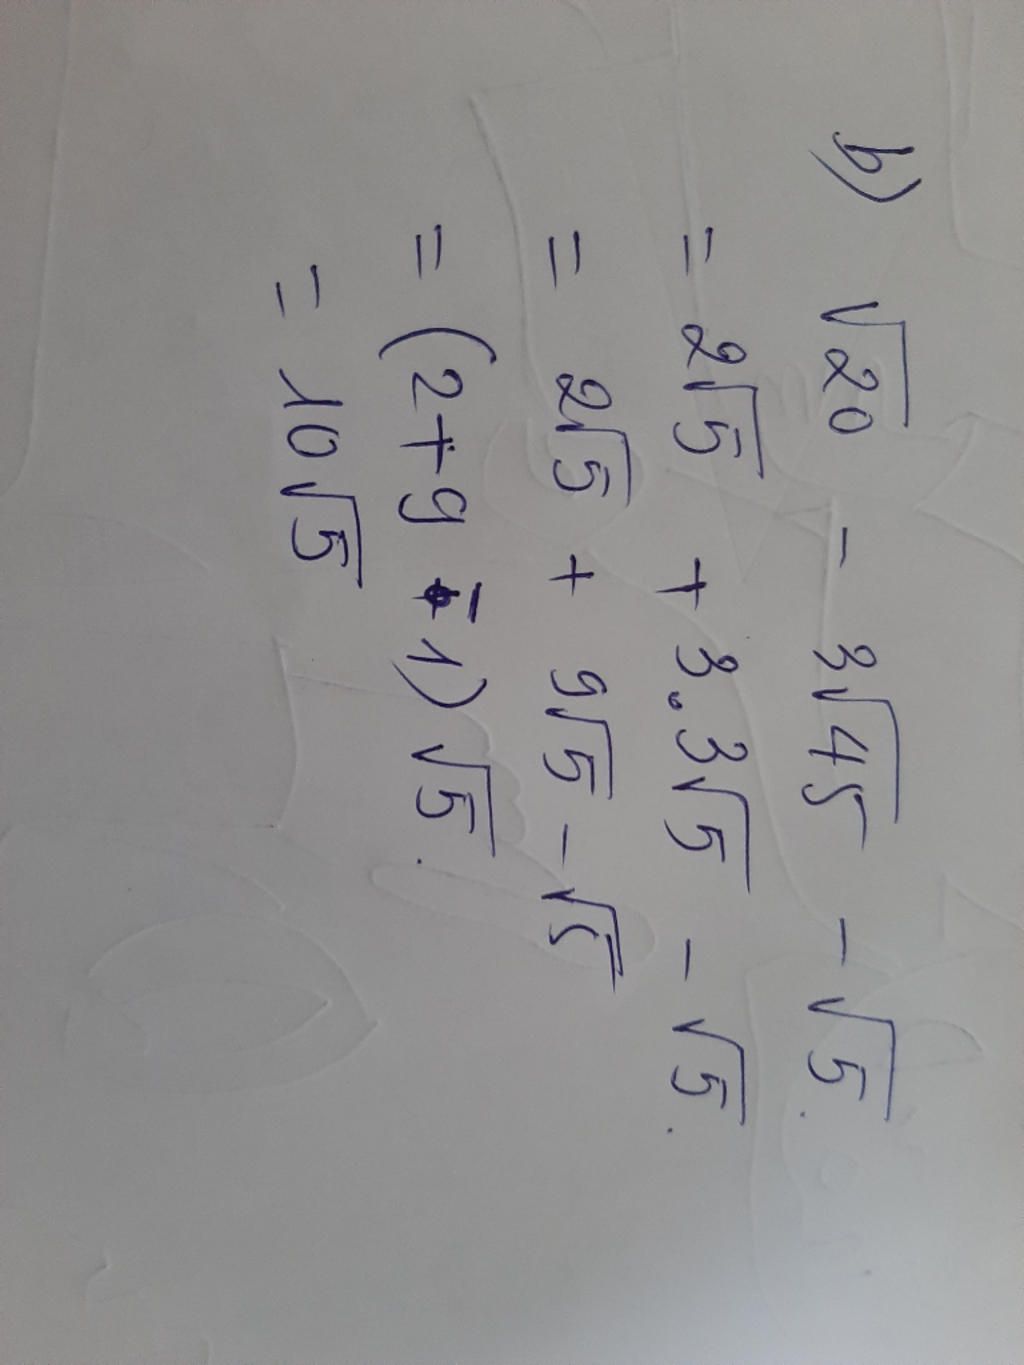 b) √20 - 3√45 - √5.
= 2√5 + 3.3√5 - √5.
= 2√5 + 9√5 - √5
= (2+9 - 1) √5.
= 10√5